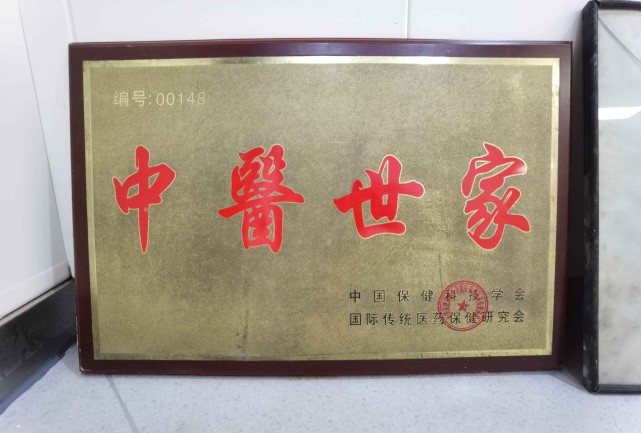 编号:00148
中醫世家
中国保健科技学会
国际传统医药保健研究会